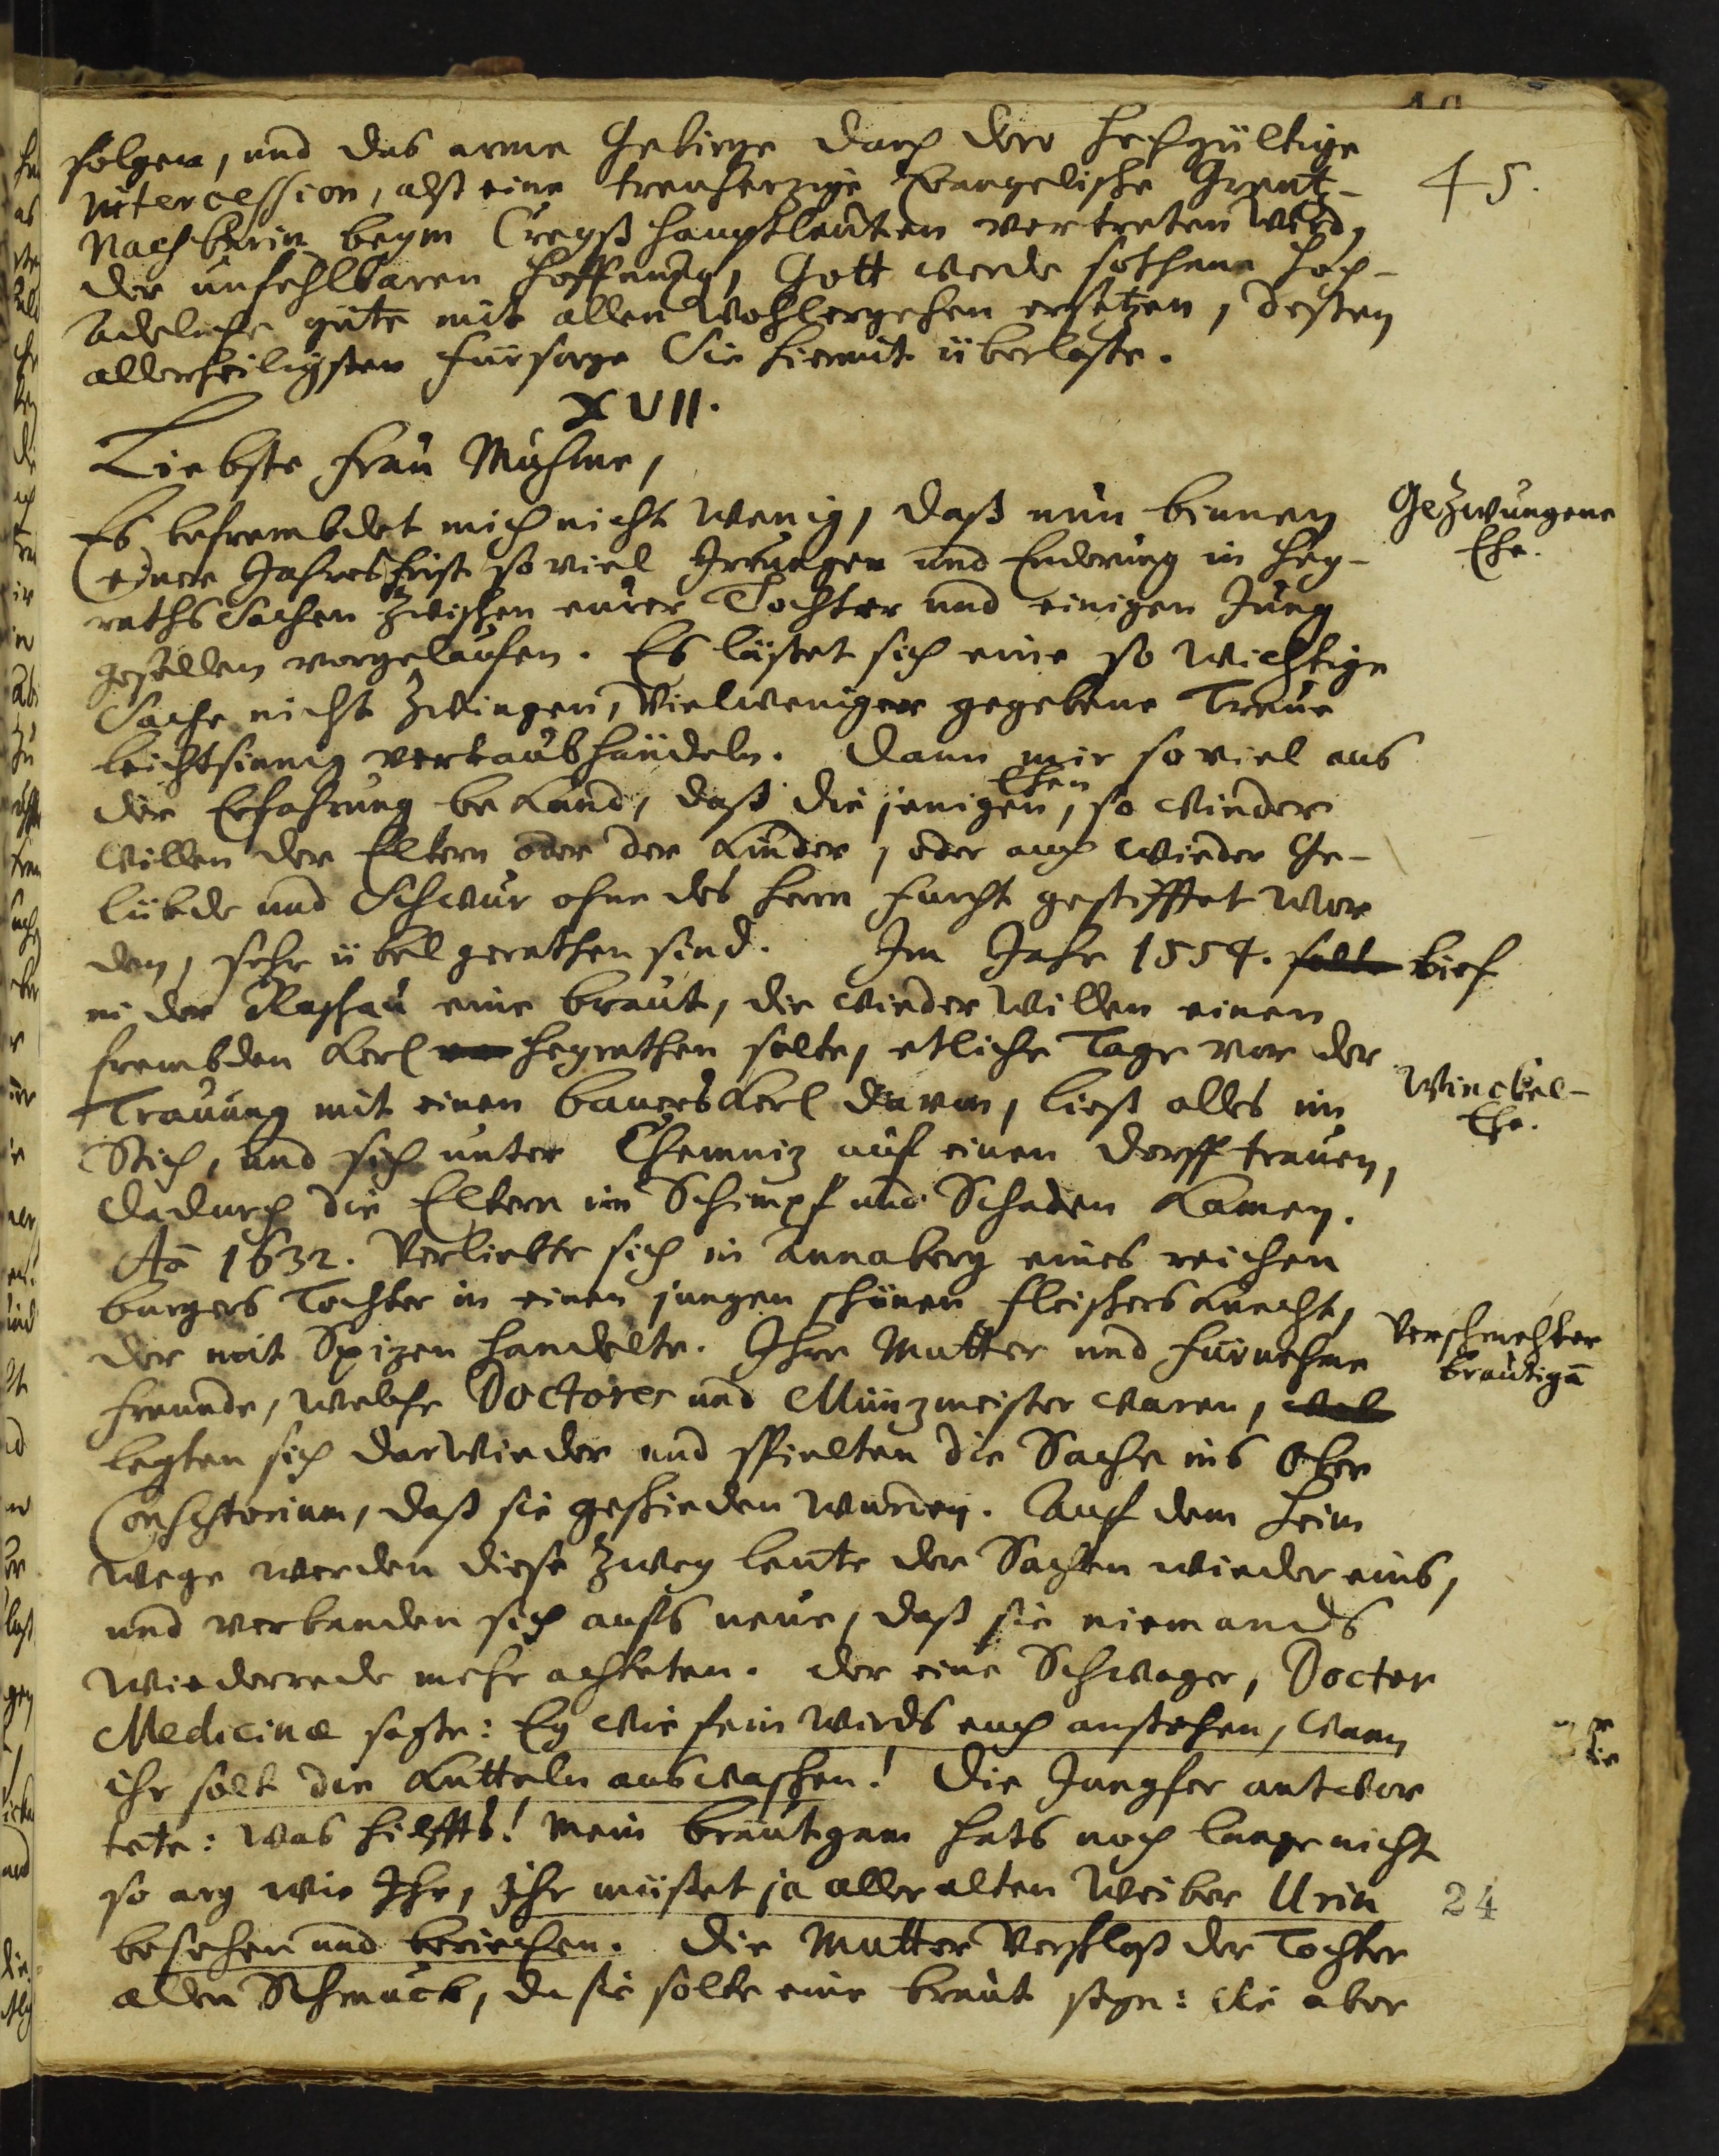 45.
folgen, und das arme Gebirge durch dero hochgültige
intercession, alß eine treuherzige Evangelische Grentz-
Nachbarin beym Creyß hauptleuten vertreten wird,
der unfehlbaren hoffnung, Gott werde solhane hoch-
adeliche güte mit allen Wohlergehen ersetzen, deßen
allerheiligsten fürsorge Sie hiermit überlaße.
XVII.
Liebste Frau Muhme,
Es befrembdet mich nicht wenig, daß nun binnen
einer Jahresfrist so viel Irrungen und Enderung in Hey-
raths Sachen zwischen eurer Tochter und einigen Jung
gesellen vorgelaufen. Es läßet sich eine so wichtige
Sache nicht zwingen, Vielweniger gegebene Treue
leichtsinnig vertaubhändeln. Dann mir so viel aus
der Erfahrung bekand, daß die jenigen Ehen, so wieder
Willen der Eltern oder der Kinder, oder auch wieder Ge-
lübde und Schwur ohne des Herrn Furcht gestifftet wor
den, sehr übel gerathen sind. Im Jahr 1554. solte lief
in der Raschau eine braut, die wieder willen einen
frembden Kerl heyrathen solte, etliche Tage vor der
Trauung mit einen bauersKerl davon, ließ alles im
Stich, und sich unter Chemniz auf einen Dorff trauen,
dadurch die Eltern in Schimpf und Schaden kamen.
Aō 1632. Verliebte sich in Annaberg eines reichen
burgers Tochter in einen jungen schönen fleischersknecht,
der mit Spizen handelte. Ihre Mutter und fürnehme
freunde, welche Doctores und Münzmeister waren,
legten sich darwieder und spielten die Sache ins Ober
Consistorium, daß sie geschieden wurden. Auf dem Heim
wege werden diese zwey leute der Sachen wieder eins,
und verbanden sich aufs neue, daß sie niemands
Wiederrede mehr achteten. Der eine Schwager, Doctor
Medicinæ sagte: Ey wie fein wirds euch anstehen, wann
ihr solt die Kutteln auswaschen! Die Jungfer antwor
tete: Was hilffts! Mein bräutgam hats noch lange nicht
so arg wie Ihr, Ihr müßet ja aller alten Weiber Urin
besehen und beriechen. Die Mutter Verschloß der Tochter
allen Schmuck, da sie solte eine braut seyn: die aber
Gezwungene
Ehe.
Winckel-
Ehe.
Verschmehter
bräutigā
24